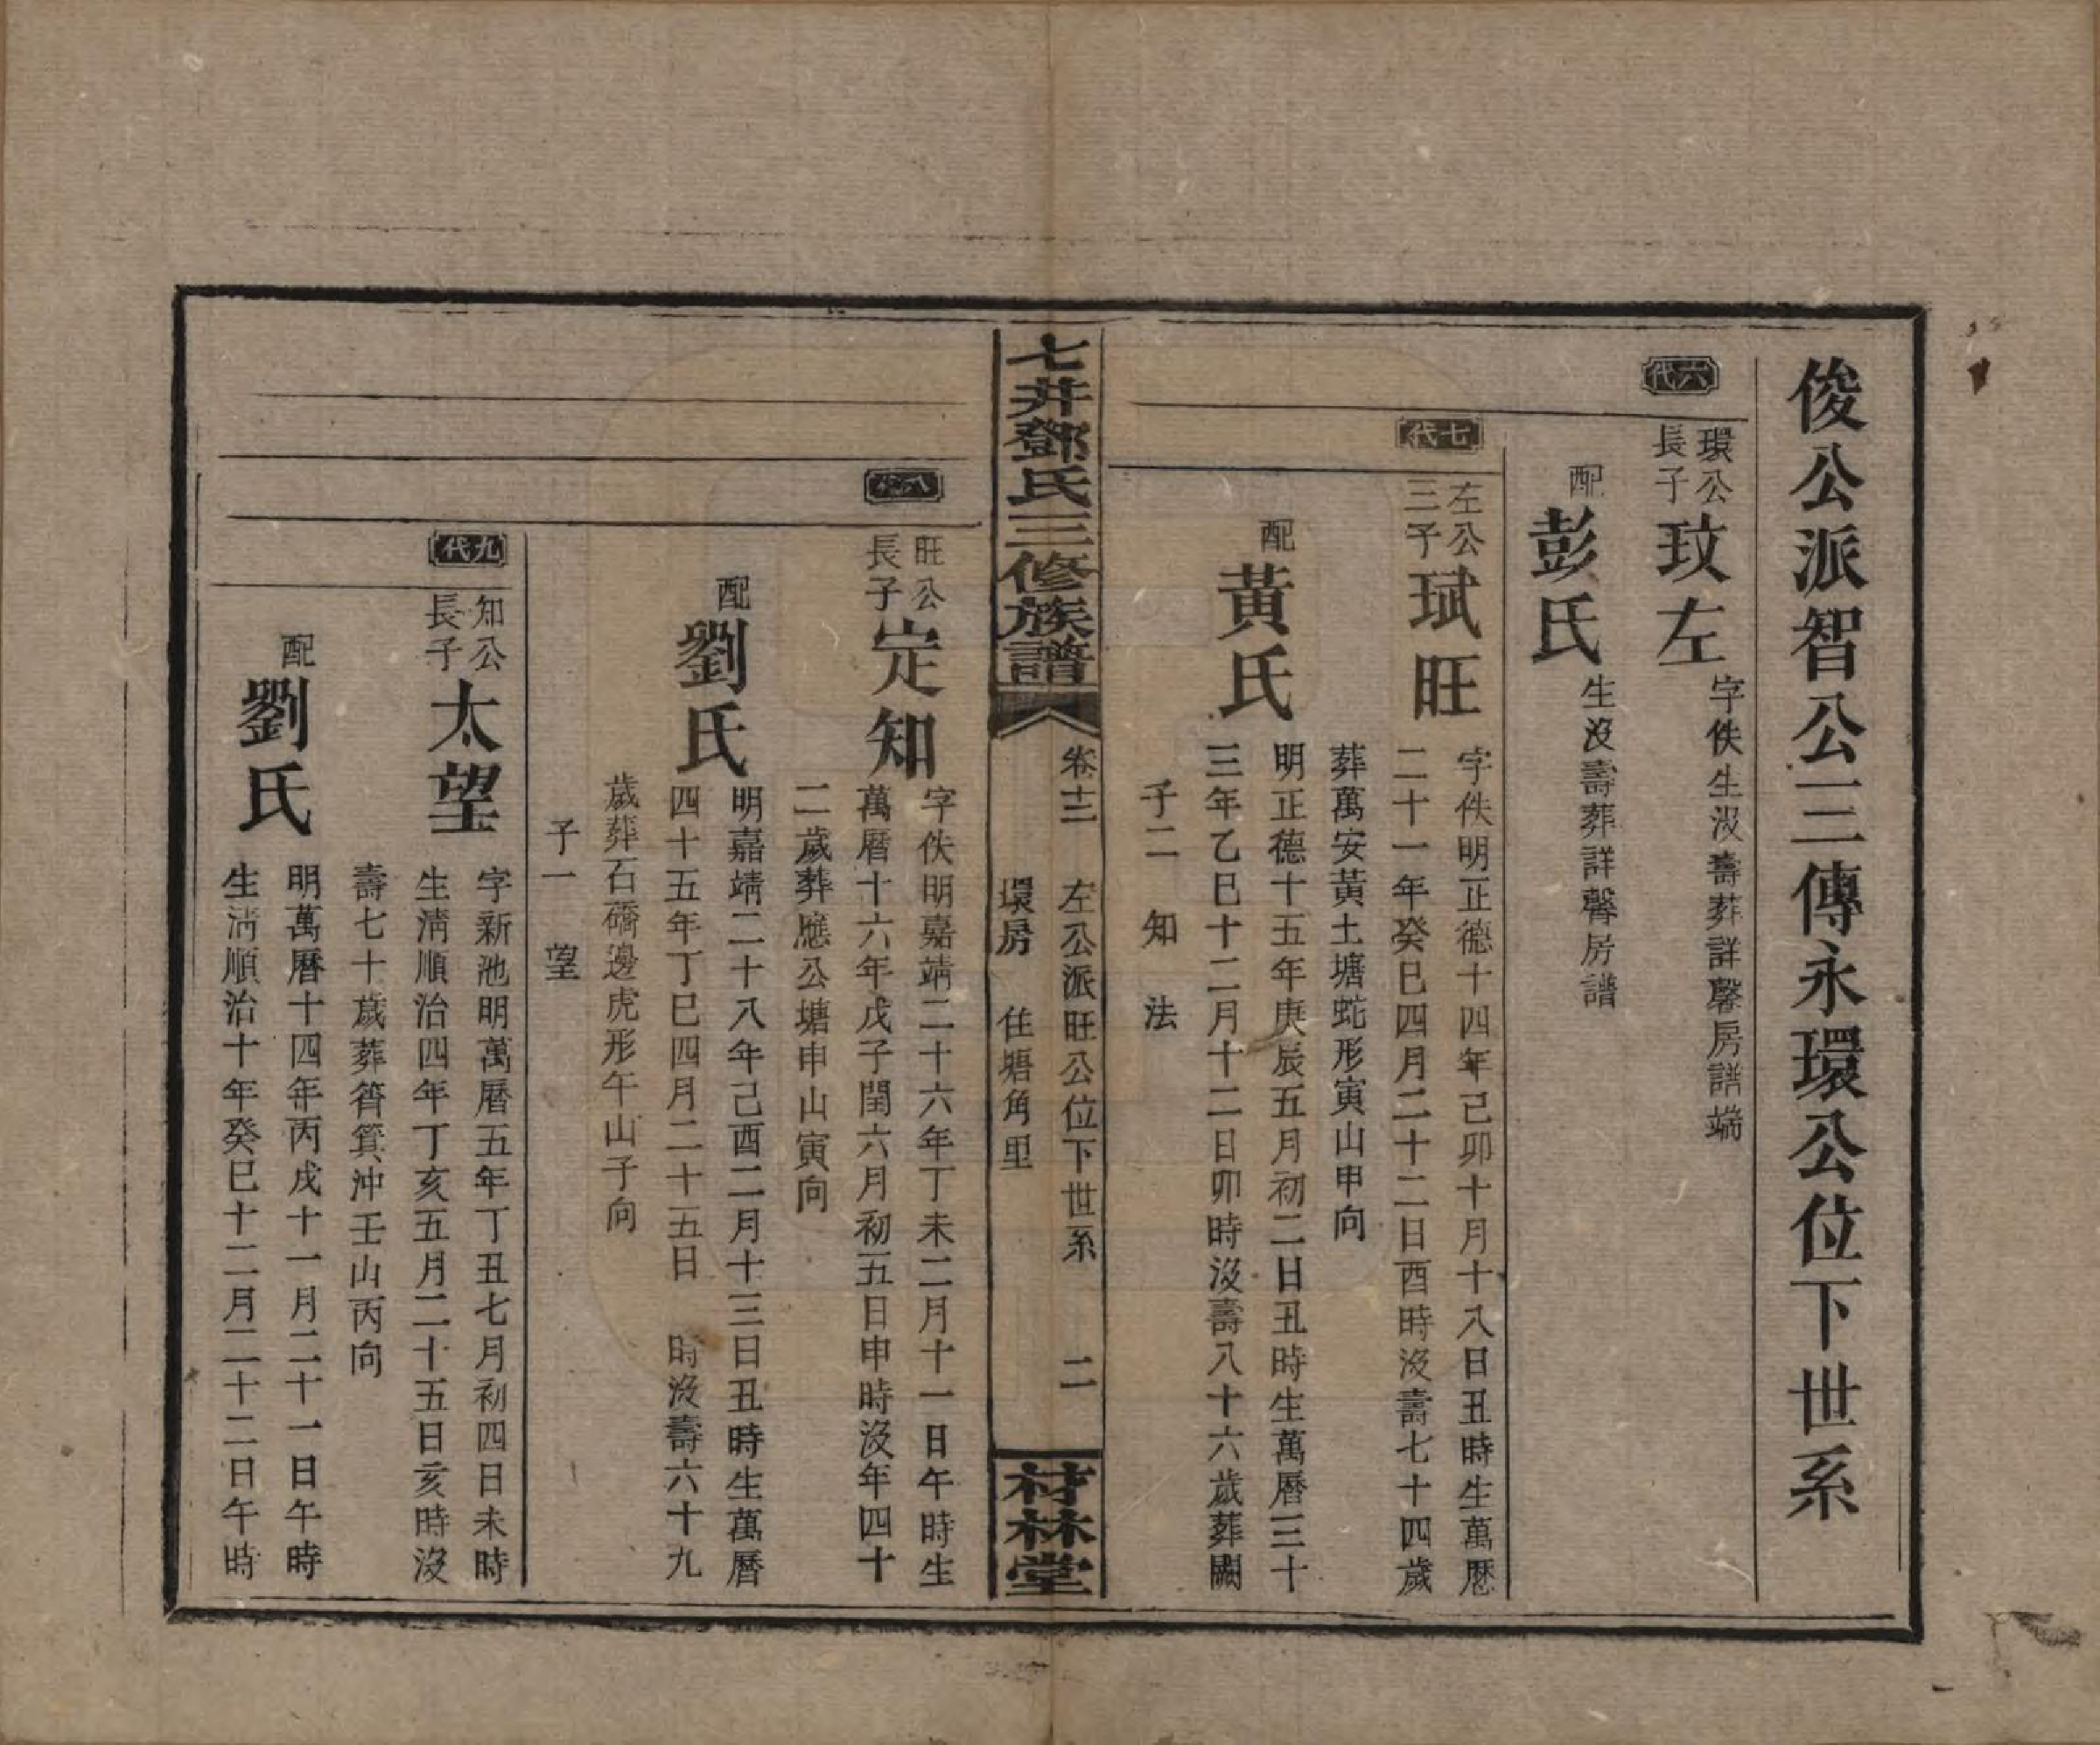 俊公派智公三傳永環公位下世系
六代
環公
長子
玟左
字佚生沒壽葬詳馨房譜端
配
彭氏
生沒壽葬詳馨房譜
七代
左公
三子
珷旺
字佚明正德十四年己卯十月十八日丑時生萬曆
二十一年癸巳四月二十二日酉時沒壽七十四歲
葬萬安黃土塘蛇形寅山申向
配
黃氏
明正德十五年庚辰五月初二日丑時生萬曆三十
三年乙巳十二月十二日卯時沒壽八十六歲葬闕
子二　知　法
七井鄧氏三修族譜
卷十二　左公派旺公位下世系　二
環房　住塘角里
材林堂
八代
旺公
長子
定知
字佚明嘉靖二十六年丁未二月十一日午時生
萬曆十六年戊子閏六月初五日申時沒年四十
二歲葬應公塘申山寅向
配
劉氏
明嘉靖二十八年己酉二月十三日丑時生萬曆
四十五年丁巳四月二十五日　時沒壽六十九
歲葬石礄邊虎形午山子向
子一　望
九代
知公
長子
太望
字新池明萬曆五年丁丑七月初四日未時
生清順治四年丁亥五月二十五日亥時沒
壽七十歲葬筲箕沖壬山丙向
配
劉氏
明萬曆十四年丙戌十一月二十一日午時
生清順治十年癸巳十二月二十二日午時